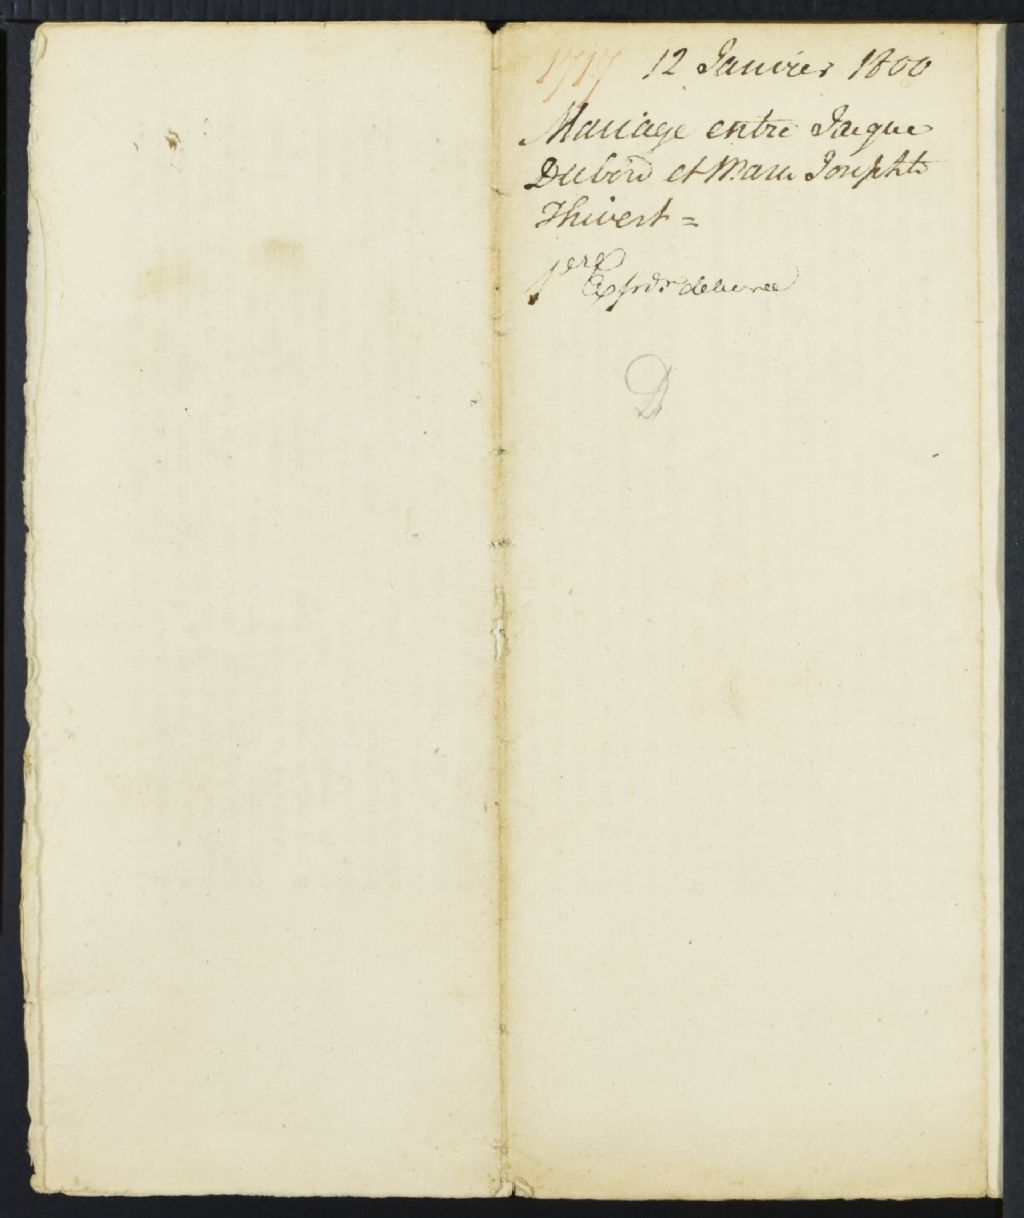 1717 12 Janvier 1800
Mariage entre Jaque
Dubord et Marie Josephte
Thivert =
1ere Expédn délivrée
D